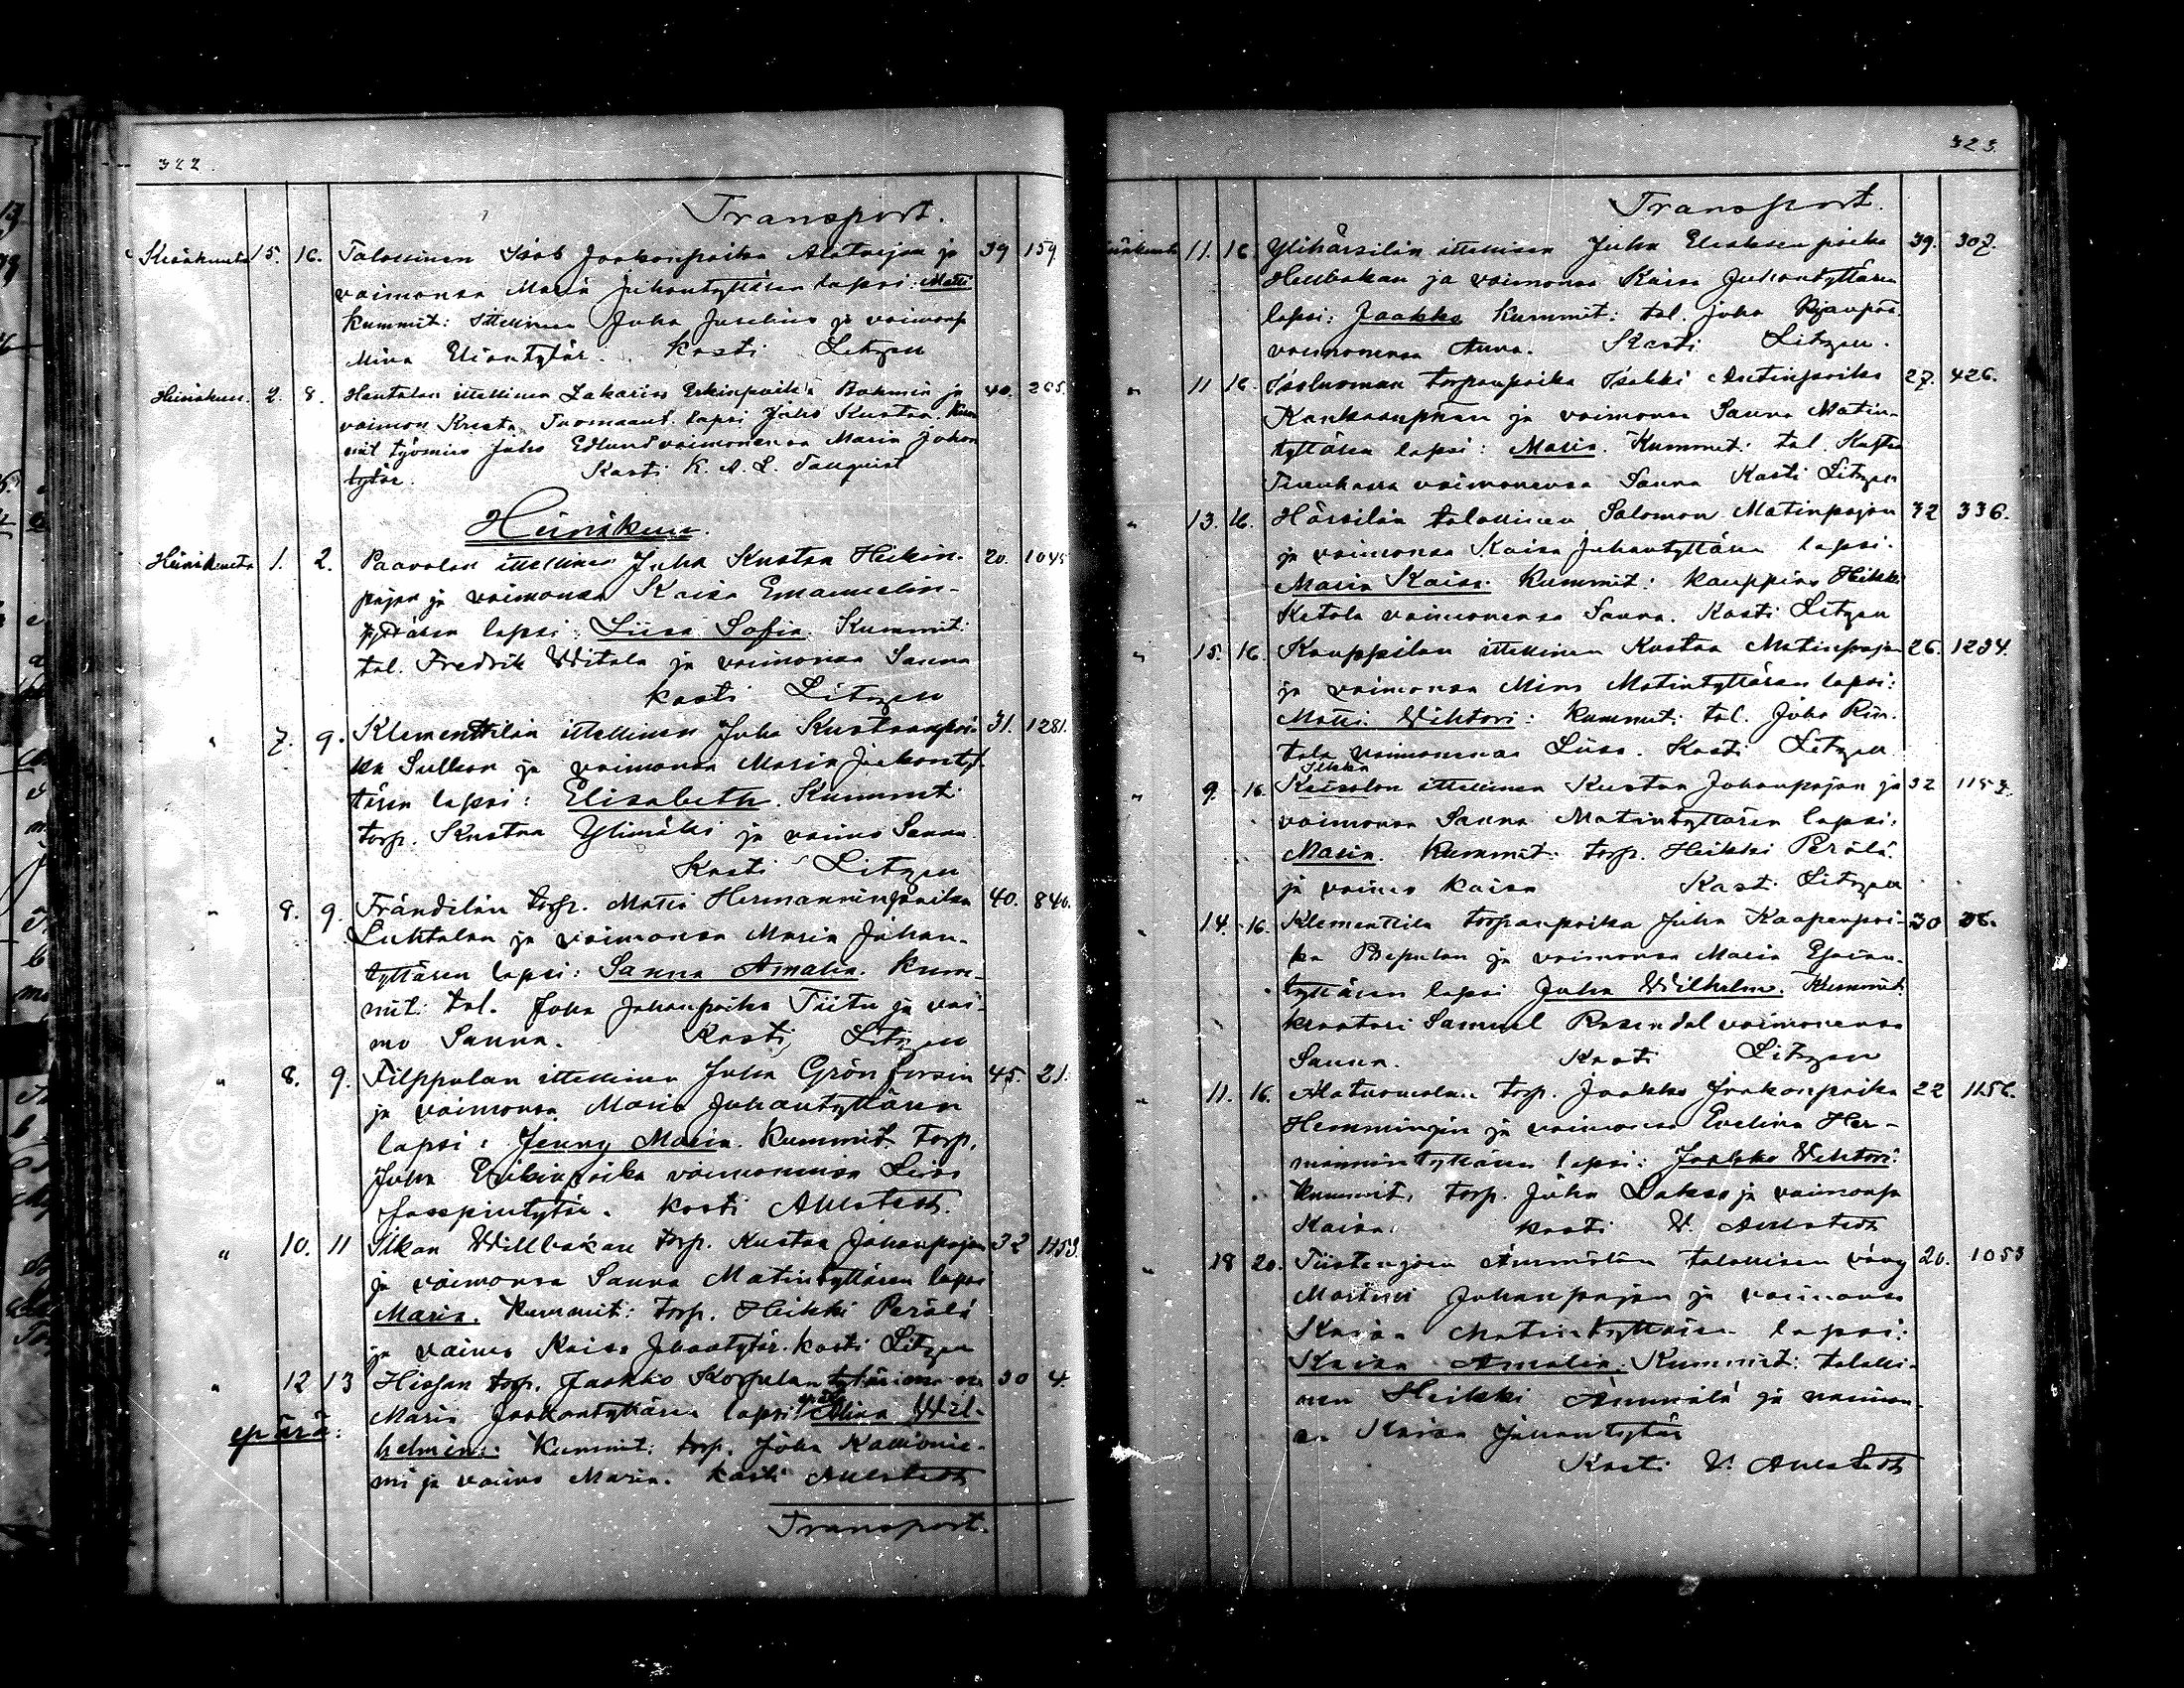 322.
Transport.
Kesäkuuta 15. 16. Talollinen Isak Jaakonpoika Alatarjan ja 39 159
vaimonsa Maria Juhontyttären lapsi: Matti
Kummit: ittellinen Juho Juselius ja vaimonsa
Mina Eliantytär. Kasti Litzen
Heinäkuu. 2. 8. Hantalan ittellinen Sakarias Erkinpoika Bahmin ja 40. 265
vaimon Kreeta Tuomaant. lapsi Juho Kustaa. Kum
mit työmies Juho Edlund vaimonensa Maria Johan
tytär. Kasti K. A. L. Tauquist
Heinäkuu.
Heinäkuuta 1. 2. Paavolan ittellinen Juha Kustaa Heikin- 20. 1045
pojan ja vaimonsa Kaisa Emanuelin-
tyttären lapsi: Liisa Sofia. Kummit:
tal. Fredrik Witala ja vaimonsa Sanna
kasti Litzen
" 7. 9. Klementtilän ittellinen Juha Kustaanpoi- 31. 1281.
ka Sullkon ja vaimonsa Maria Jaakonty
tären lapsi: Elisabeth. Kummit
torp. Kustaa Ylimäki ja vaimo Sanna.
Kasti Litzen
" 8. 9. Frändilän torp. Matti Hermanninpoika 40. 840.
Luhtalan ja vaimonsa Maria Juhan-
tyttären lapsi: Sanna Amalia. Kum-
mit: tal. Juha Juhanpoika Tiitu ja vai-
mo Sanna. Kasti Litzen
" 8. 9. Filppulan ittellinen Juha Grönforsin 45. 21.
ja vaimonsa Maria Juhantyttären
lapsi: Jenny Maria. Kummit torp.
Juha Erikinpoika vaimonensa Liisa
Josepintytär. kasti Ahlstedt.
" 10. 11 Ilkan Willbakan torp. Kustaa Juhanpojan 32 1153.
ja vaimonsa Sanna Matintyttären lapsi
Maria. Kummit: torp. Heikki Perälä
ja vaimo Kaisa Juhantytär. kasti Litzen
" 12 13 Hissan torp. Jaakko Korpelan tytärensä 30 4.
Maria Jaakontyttären lapsi Miina Wil-
epärä: helmina. Kummit: torp. Juha Kallionie-
mi ja vaimo Maria. kasti Ahlstedt
Transport.
323.
Transport.
11. 16 Ylihärsilän ittellisen Juha Eliaksen poika 39. 307.
Hellbakan ja vaimonsa Kaisa Juhantyttären
lapsi: Jaakko Kummit: tal. Juho
vaimonensa Anna. Kasti Litzen.
" 11 16. Isoluoman torpanpoika Isakki Antinpoika 27. 426.
Kankaanpään ja vaimonsa Sanna Matin-
tyttären lapsi: Maria. Kummit: tal. Kustaa
vaimonensa Sanna Kasti Litzen
" 13. 16. Härsilän talollinen Salomon Matinpojan 32 336.
ja vaimonsa Kaisa Juhantyttären lapsi.
Maria Kaisa. Kummit: kauppias Heikki
Ketola vaimonensa Sanna. Kasti Litzen
" 15. 16. Kauppilan ittellinen Kustaa Matinpojan 26. 1234.
ja vaimonsa Mina Matintyttären lapsi:
Matti Wihtori: Kummit: tal. Juho Rin-
tala vaimonensa Liisa. Kasti Litzen
Ilkka
" 9. 16. Kaisalon ittellinen Kustaa Johanpojan ja 32 1153.
vaimonsa Sanna Matintyttären lapsi:
Maria. Kummit: torp. Heikki Perälä
ja vaimo Kaisa Kasti Litzen
" 14. 16. Klementtila torpanpoika Juha Kaapanpoi- 30 36.
ka Repulan ja vaimonsa Maria Esaian-
tyttären lapsi Juha Wilhelm. Kummit.
kraatari Samuel Rosendal vaimonensa
Sanna. Kasti Litzen
" 11. 16. Alatuomalan torp. Jaakko Jaakonpoika 22 1156.
Hemmingin ja vaimonsa Evelina Her-
manintyttären lapsi: Jaakko Wihtori.
Kummit, torp. Juha Lakso ja vaimonsa
Kaisa. kasti W. Ahlstedt
" 18 20. Tiistenjoen Ämmälän talollisen vävy 20. 1053
Martinin Juhanpojan ja vaimonsa
Kaisa Matintyttären lapsi:
Kaisa Amalia. Kummit: taloll-
nen Heikki Ämmälä ja vaimon-
sa Kaisa Juhantytär
Kasti W. Ahlstedt